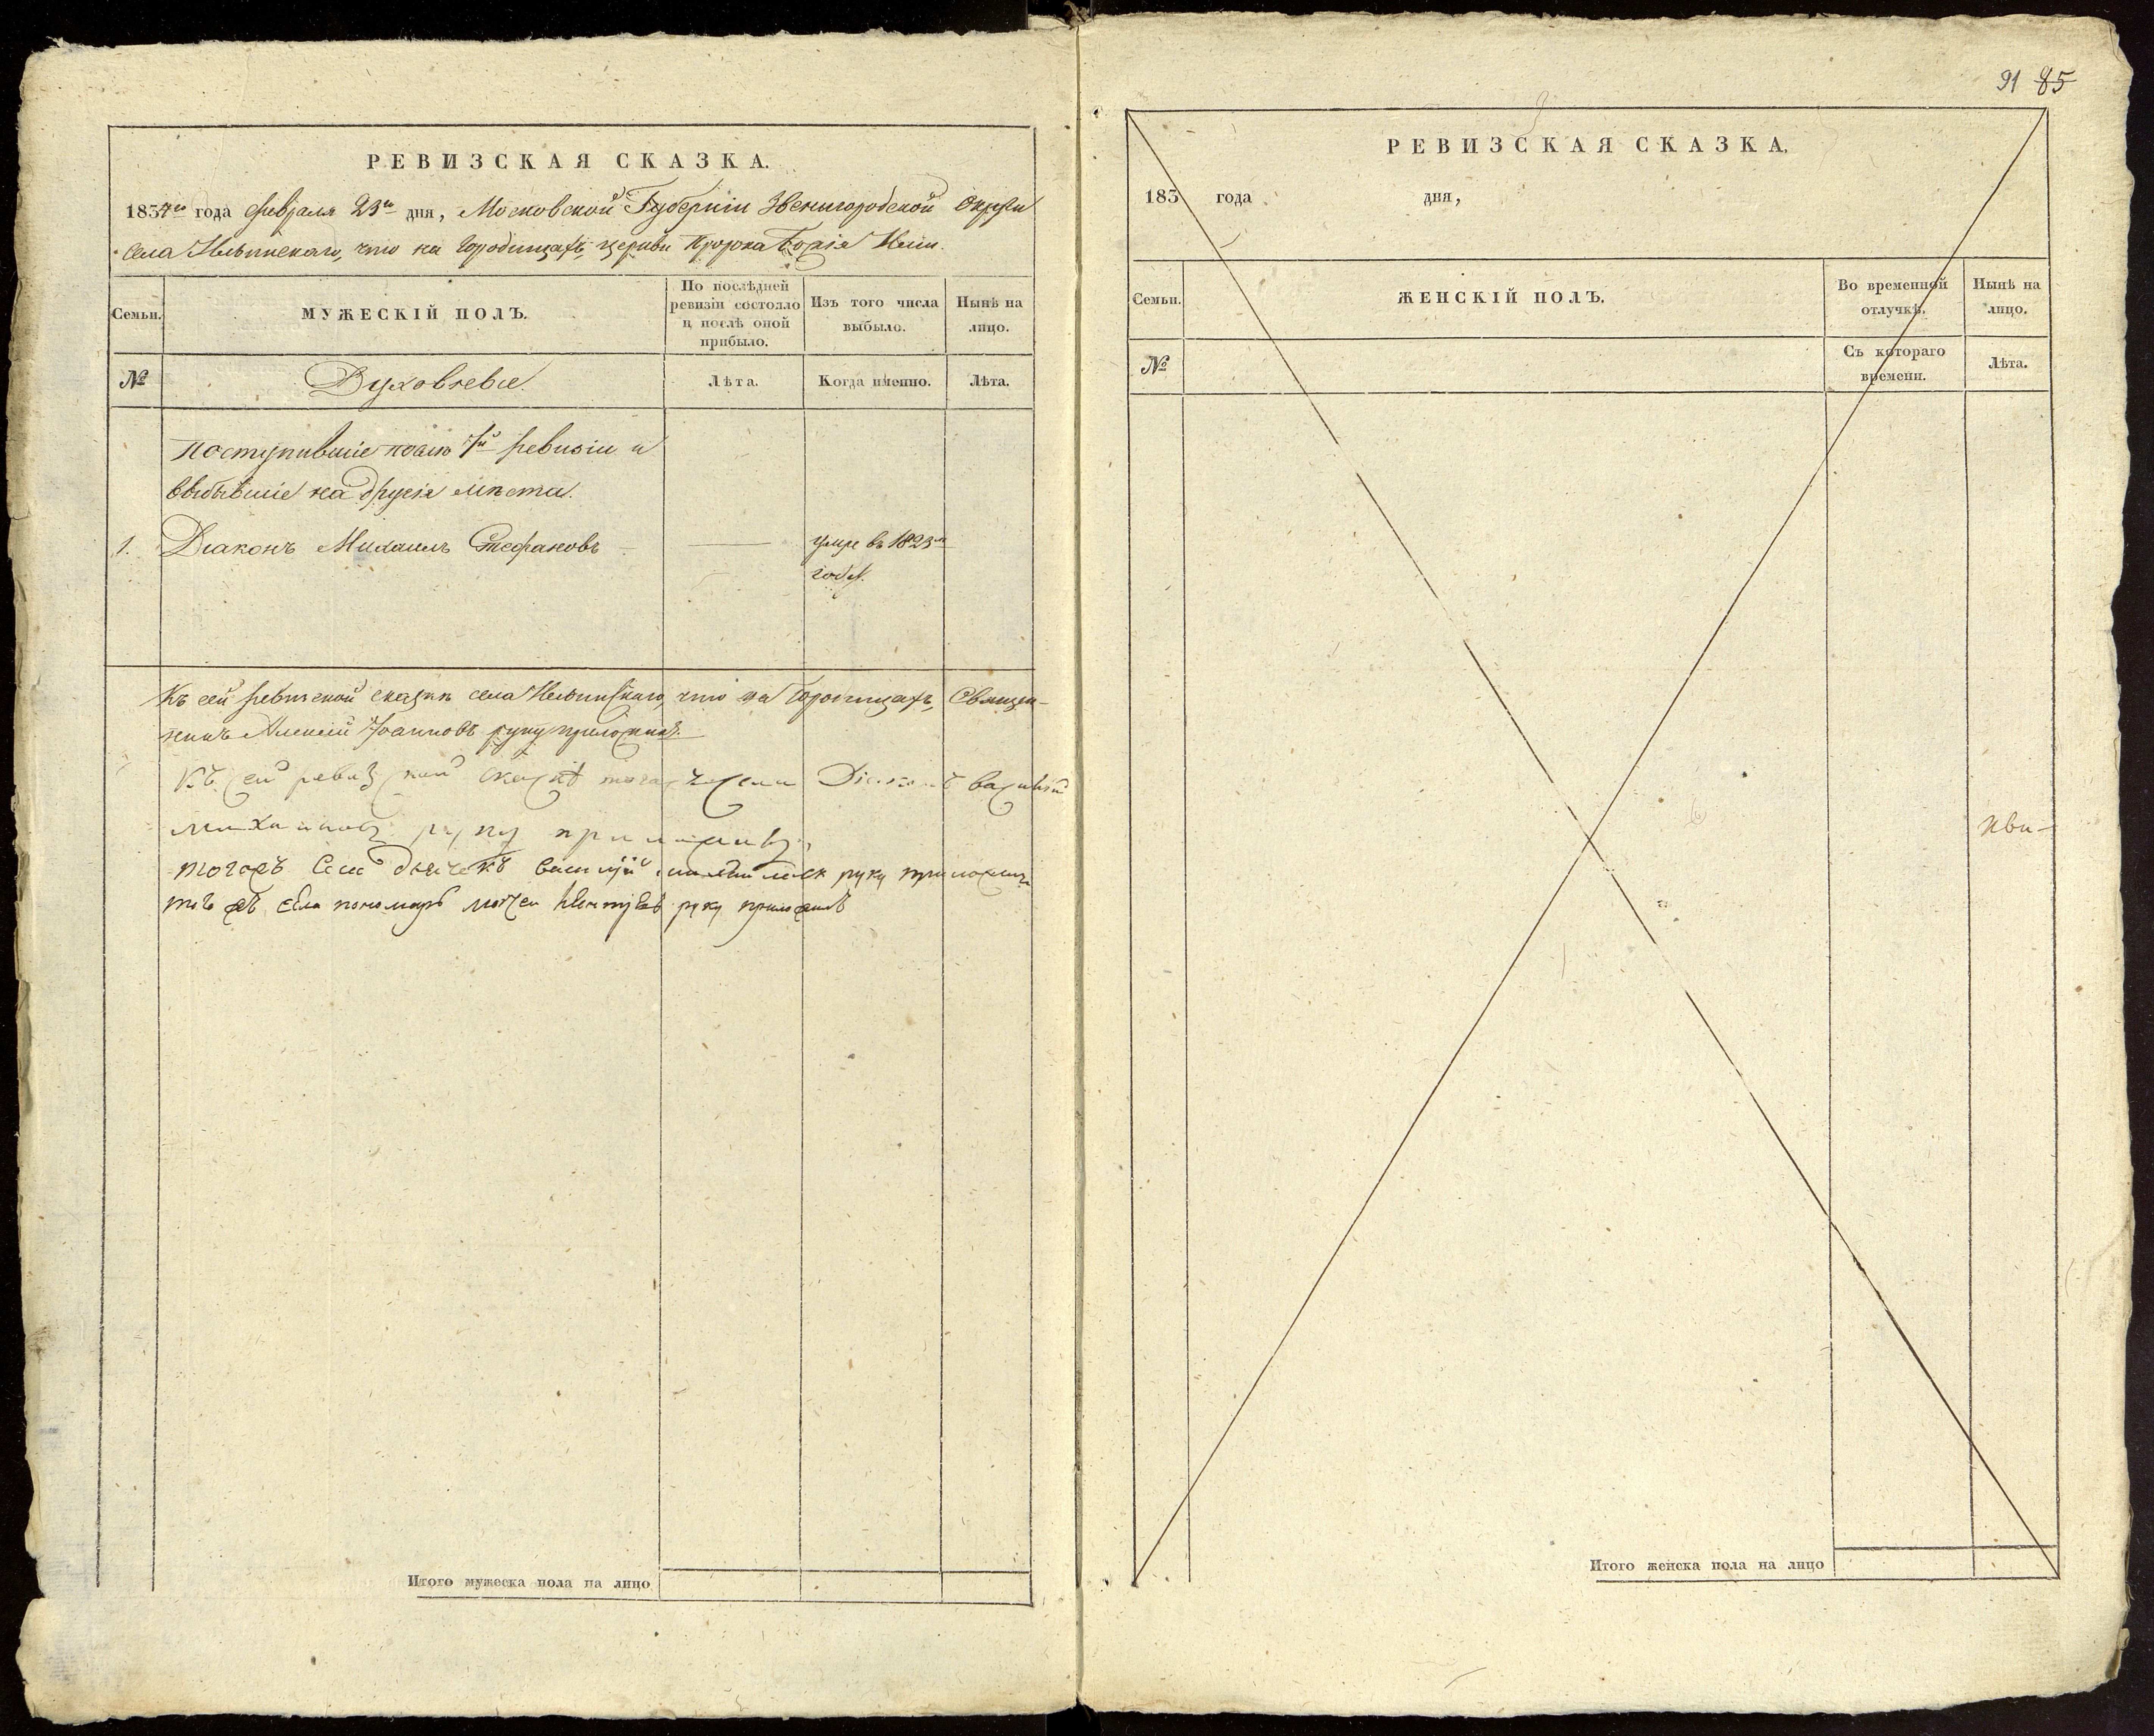 РЕВИЗСКАЯ СКАЗКА.
1834го года февраля 23го дня, Московской Губернiи Звенигородской Округи
села Ильинскаго, что на Городищахъ, церкви Пророка Божiя Илiи.
Семьи.
МУЖЕСКIЙ ПОЛЪ.
По послѣдней
ревизiи состояло
и послѣ оной
прибыло.
Изъ того числа
выбыло.
Нынѣ на
лицо.
№
Духовные.
Лѣта.
Когда именно.
Лѣта.
поступившiе послѣ 7й ревизiи и
выбывшiе на другiя мѣста.
1. Дiаконъ Михаилъ Стефановъ
умре въ 1823м
годѣ.
Къ сей ревизской сказкѣ села Ильинскаго, что на Городищахъ, Священ-
никъ Алексiй Iоанновъ руку приложилъ.
Къ сей ревизской сказкѣ тогожъ села Дiаконъ Василiй
Михаиловъ руку приложилъ
тогожъ села дьячекъ Василiй руку приложилъ
тогожъ села пономарь руку приложилъ
Итого мужеска пола на лицо
91 85
РЕВИЗСКАЯ СКАЗКА.
183 года дня,
Семьи.
ЖЕНСКIЙ ПОЛЪ.
Во временной
отлучкѣ.
Нынѣ на
лицо.
№
Съ котораго
времени.
Лѣта.
Итого женска пола на лицо